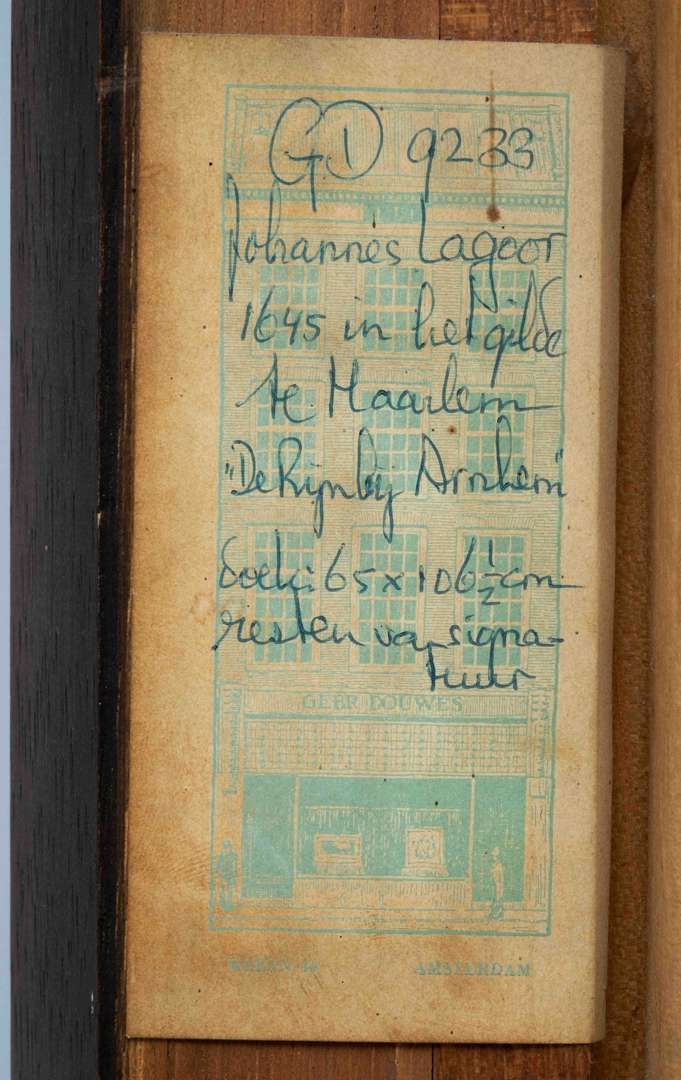 GD 9233
Johannes Lagoor
1645 in het gilde
te Haarlem
"De Rijn bij Arnhem"
doek: 65 x 106 1/2 cm
resten van signa-
tuur
GEBR DOUWES
AMSTERDAM